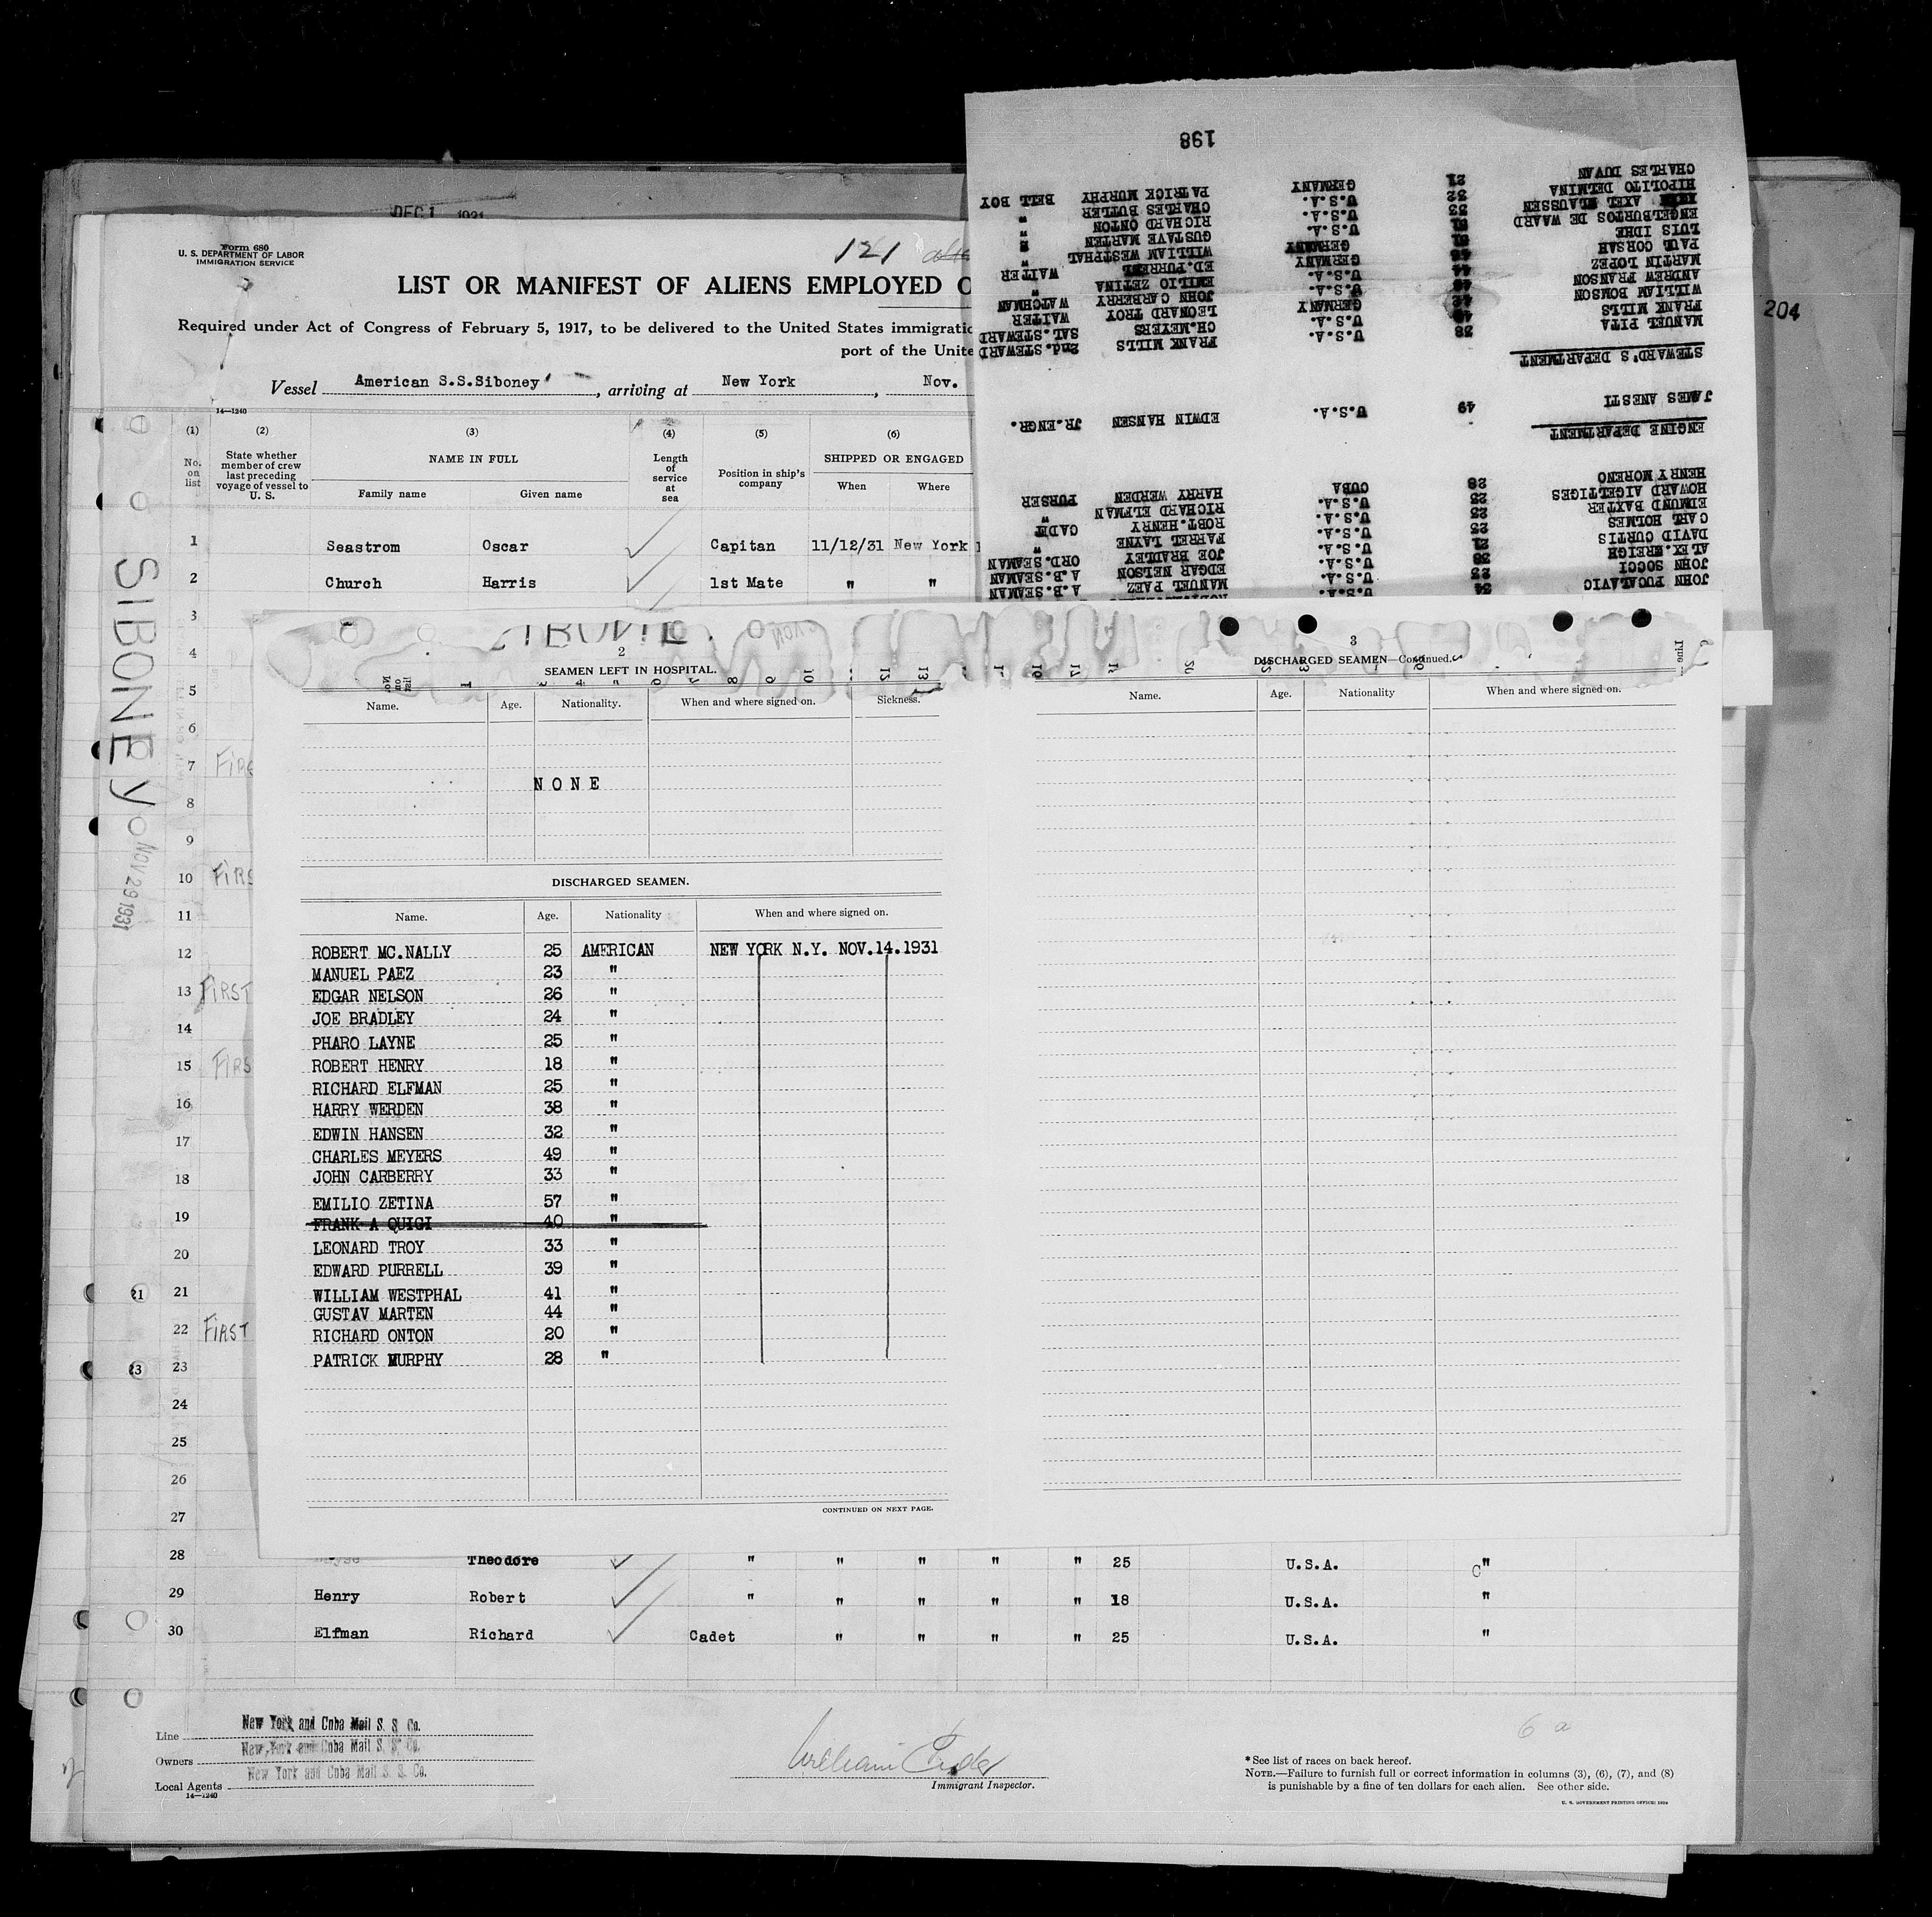 DEC 1 1931
Form 680
U. S. DEPARTMENT OF LABOR
IMMIGRATION SERVICE
121
LIST OR MANIFEST OF ALIENS EMPLOYED O
Required under Act of Congress of February 5, 1917, to be delivered to the United States immigratio
port of the Unite
Vessel American S.S.Siboney, arriving at New York, Nov.
14—1240
(1) (2) (3) (4) (5) (6)
No. on list
State whether member of crew last preceding voyage of vessel to U. S.
NAME IN FULL
Family name Given name
Length of service at sea
Position in ship's company
SHIPPED OR ENGAGED
When Where
1 Seastrom Oscar Capitan 11/12/31 New York
2 Church Harris 1st Mate " "
3
4
5
6
7 FIRS
8
9
10 FIRS
11
12
13 FIRST
14
15 FIRS
16
17
18
19
20
21 21
22 FIRST
23 23
24
25
26
27
SIBONEY
NOV 29 1931
198
204
CHARLES DUVAN 21 GERMANY PATRICK MURPHY BELL BOY
HIPOLITO DELMINA 32 U.S.A. CHARLES BUTLER "
AXEL KLAUSSEN 33 U.S.A. RICHARD ONTON "
ENGELBURTOS DE WAARD 51 U.S.A. GUSTAVE MARTEN "
LUIS IDHE GERMANY WILLIAM WESTPHAL "
PAUL CORSAH GERMANY ED.PURRELL WAITER
MARTIN LOPEZ 44 U.S.A. EMILIO ZETINA "
ANDREW FRANSON U.S.A. JOHN CARBERRY WATCHMAN
WILLIAM BOMSON GERMANY LEONARD TROY WAITER
FRANK MILLS U.S.A. CH.MEYERS SAL.STEWARD
MANUEL PITA 38 U.S.A. FRANK MILLS 2nd.STEWARD
STEWARD'S DEPARTMENT
JAMES ANESTI 49 U.S.A. EDWIN HANSEN JR.ENGR.
ENGINE DEPARTMENT
HENRY MORENO 28 CUBA HARRY WERDEN PURSER
HOWARD AIGELTIGES 25 U.S.A. RICHARD ELFMAN "
EDMUND BAXTER 25 U.S.A. ROBT.HENRY CADET
CARL HOLMES 25 U.S.A. FARREL LAYNE "
DAVID CURTIS 21 U.S.A. JOE BRADLEY ORD.SEAMAN
ALEX. 38 U.S.A. EDGAR NELSON A.B.SEAMAN
JOHN SOCCI 23 U.S.A. MANUEL PAEZ A.B.SEAMAN
JOHN PUCALAVIC 34 U.S.A.
2
SEAMEN LEFT IN HOSPITAL.
Name. Age. Nationality. When and where signed on. Sickness.
NONE
DISCHARGED SEAMEN.
Name. Age. Nationality When and where signed on.
ROBERT MC.NALLY 25 AMERICAN NEW YORK N.Y. NOV.14.1931
MANUEL PAEZ 23 "
EDGAR NELSON 26 "
JOE BRADLEY 24 "
PHARO LAYNE 25 "
ROBERT HENRY 18 "
RICHARD ELFMAN 25 "
HARRY WERDEN 38 "
EDWIN HANSEN 32 "
CHARLES MEYERS 49 "
JOHN CARBERRY 33 "
EMILIO ZETINA 57 "
FRANK A QUIGI 40 "
LEONARD TROY 33 "
EDWARD PURRELL 39 "
WILLIAM WESTPHAL 41 "
GUSTAV MARTEN 44 "
RICHARD ONTON 20 "
PATRICK MURPHY 28 "
CONTINUED ON NEXT PAGE.
3
DISCHARGED SEAMEN—Continued.
Name. Age. Nationality When and where signed on.
28 Theodore " " " " " 25 U.S.A. "
29 Henry Robert " " " " " 18 U.S.A. "
30 Elfman Richard Cadet " " " " 25 U.S.A. "
Line New York and Cuba Mail S. S. Co.
Owners New York and Cuba Mail S. S. Co.
Local Agents New York and Cuba Mail S. S. Co.
14—1240
William
Immigrant Inspector.
6 a
*See list of races on back hereof.
NOTE.—Failure to furnish full or correct information in columns (3), (6), (7), and (8)
is punishable by a fine of ten dollars for each alien. See other side.
U. S. GOVERNMENT PRINTING OFFICE: 1929